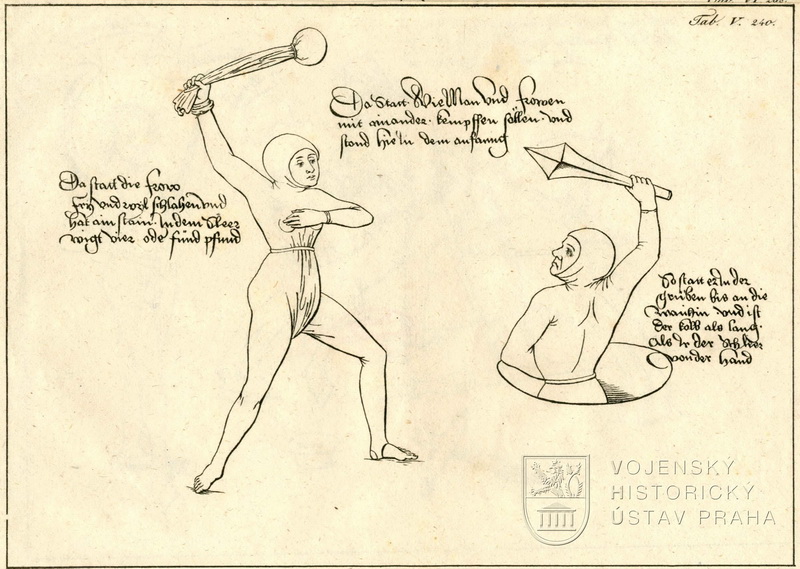 Tab. V. 240.
Da Statt Wie Man und frowen
mit ainander kempffen söllen und
stond hie in dem anfanng
Da statt die frow
fry und wyl schlahen und
hat ain stain In dem Sleer
wigt vier ode fünd pfund
So statt er In der
gruben bis an die
waichin und ist
der kolb als lang
Als Ir der Schleer
von der hand
VOJENSKÝ
HISTORICKÝ
ÚSTAV PRAHA